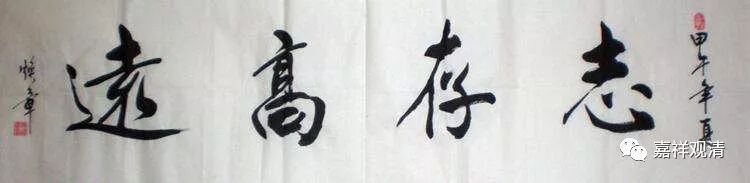 甲午年夏
志存高遠
煥章
嘉祥观清